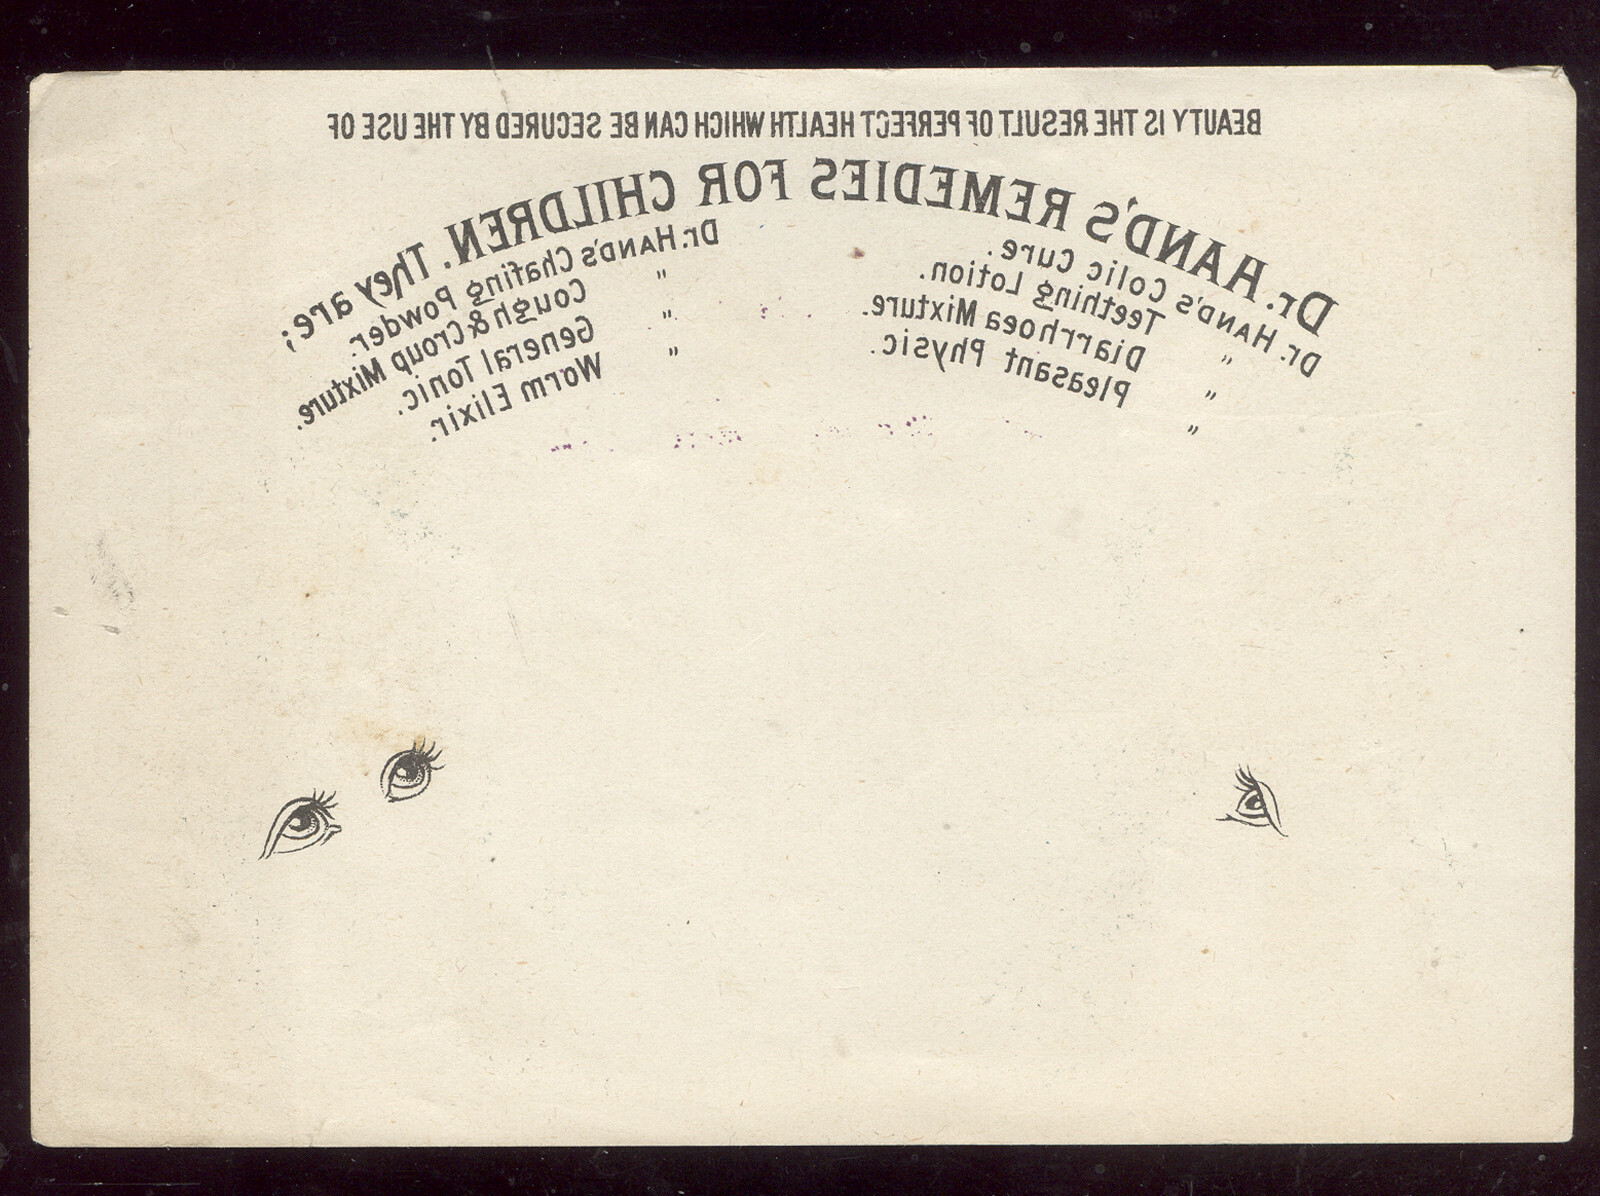 BEAUTY IS THE RESULT OF PERFECT HEALTH WHICH CAN BE SECURED BY THE USE OF
Dr. HAND'S REMEDIES FOR CHILDREN. They are;
Dr. HAND'S Colic Cure.
" Teething Lotion.
" Diarrhoea Mixture.
" Pleasant Physic.
Dr. HAND'S Chafing Powder.
" Cough & Croup Mixture.
" General Tonic.
" Worm Elixir.